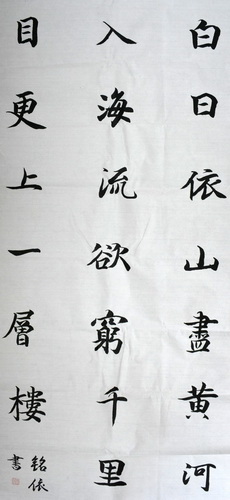 白日依山盡黄河
入海流欲窮千里
目更上一層樓
銘依
書